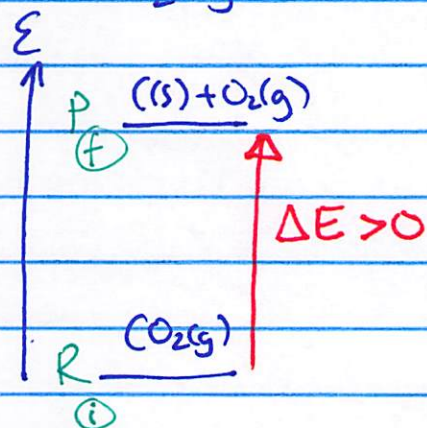 E
P C(s) + O₂(g)
f
ΔE > 0
CO₂(g)
R
i